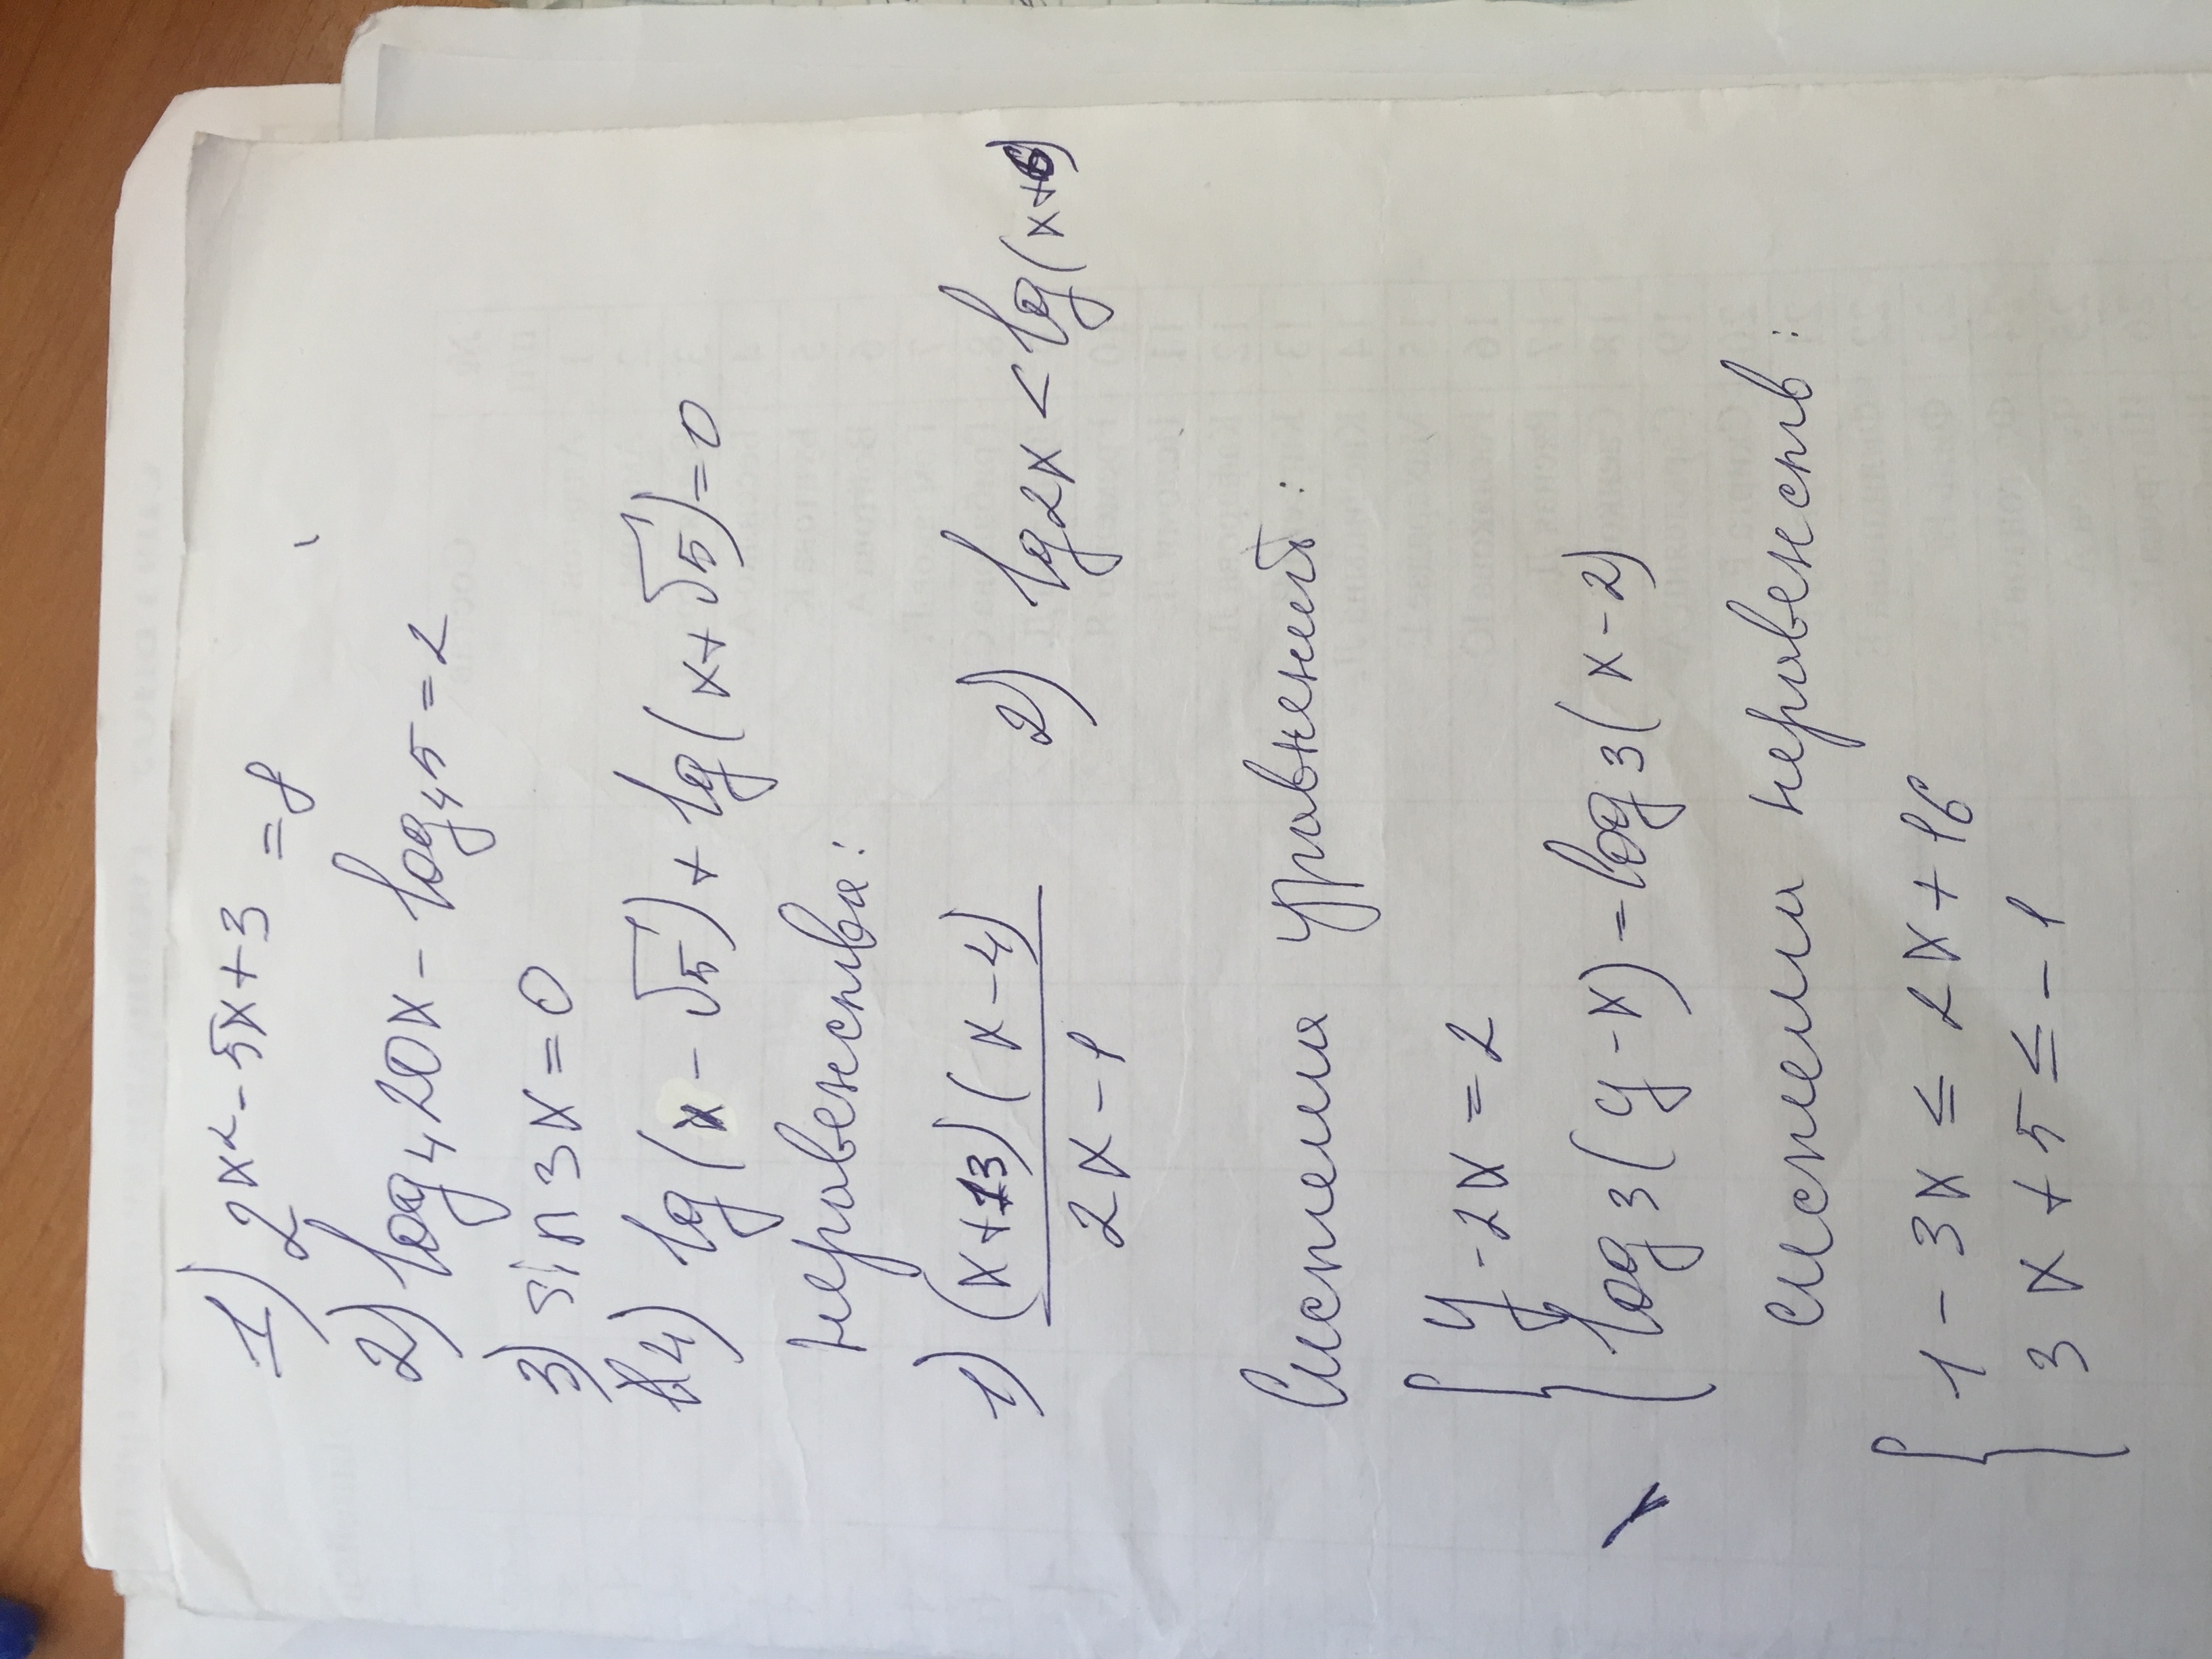 1) 2x² - 5x + 3 = 8
2) log₄ 20x - log₄ 5 = 2
3) sin 3x = 0
4) lg(x - √5) + lg(x + √5) = 0
неравенства:
1) (x+13)(x-4) / 2x - 1 2) lg 2x < lg(x+6)
Система уравнений:
{ y - 2x = 2
{ log₃(y - x) = log₃(x - 2)
системы неравенств:
{ 1 - 3x ≤ 2x + 16
{ 3x + 5 ≤ -1